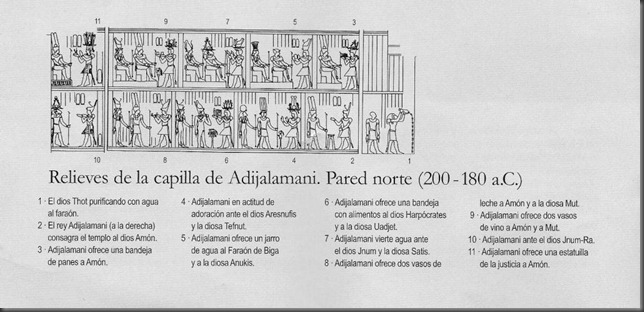 11 9 7 5 3
10 8 6 4 2 1
Relieves de la capilla de Adijalamani. Pared norte (200-180 a.C.)
1 · El dios Thot purificando con agua
al faraón.
2 · El rey Adijalamani (a la derecha)
consagra el templo al dios Amón.
3 · Adijalamani ofrece una bandeja
de panes a Amón.
4 · Adijalamani en actitud de
adoración ante el dios Aresnufis
y la diosa Tefnut.
5 · Adijalamani ofrece un jarro
de agua al Faraón de Biga
y a la diosa Anukis.
6 · Adijalamani ofrece una bandeja
con alimentos al dios Harpócrates
y a la diosa Uadjet.
7 · Adijalamani vierte agua ante
el dios Jnum y la diosa Satis.
8 · Adijalamani ofrece dos vasos de
leche a Amón y a la diosa Mut.
9 · Adijalamani ofrece dos vasos
de vino a Amón y a Mut.
10 · Adijalamani ante el dios Jnum-Ra.
11 · Adijalamani ofrece una estatuilla
de la justicia a Amón.